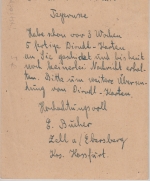 Habe schon vor 3 Wochen
5 fertige Dirndl-Karten
an Sie gesendet und bis heute
noch keinerlei Nachricht erhal-
ten. Bitte um weitere Übersen-
dung von Dirndl-Karten
Hochachtungsvoll
G. Bücher
Zell a/ Ebersberg
Krs. Hassfurt.